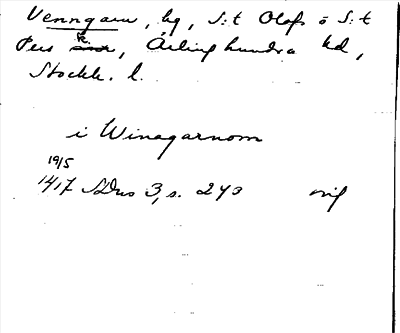 Venngarn, hg, S:t Olofs o S:t
Pers k., Ärlinghundra hd,
Stockh. l.
i Winagarnom
19/5
1417 SDns 3, s. 243 orig